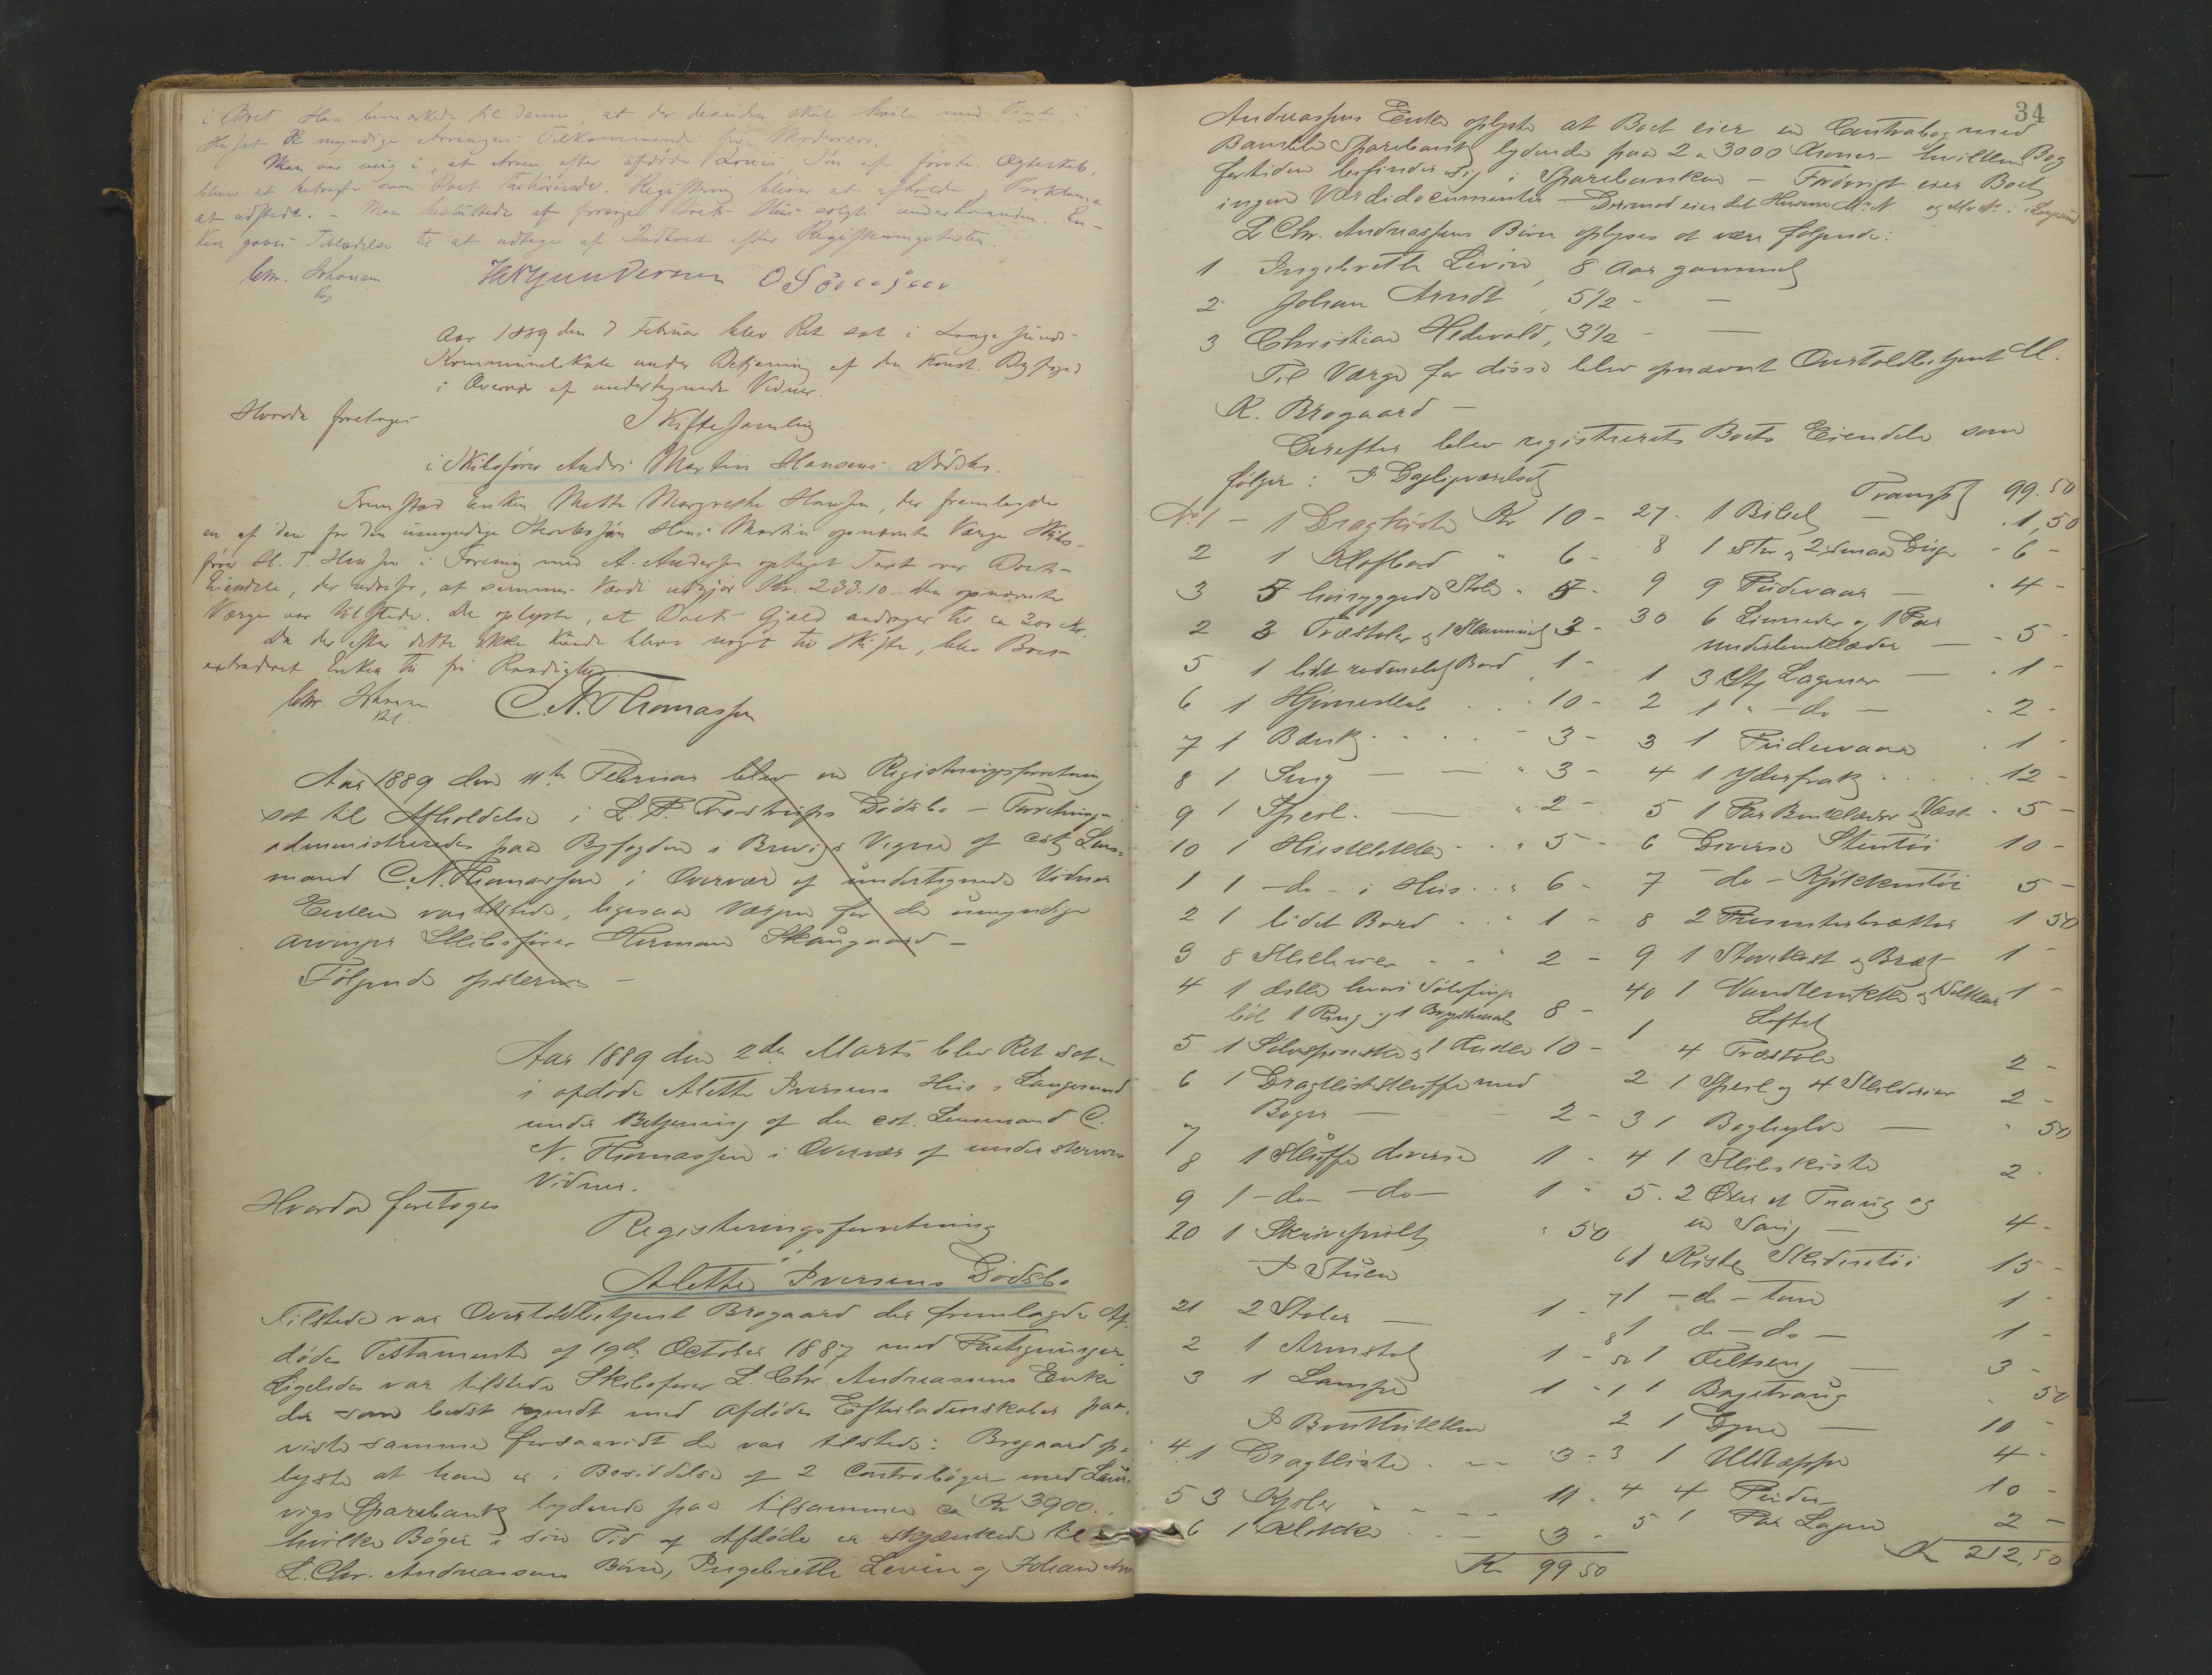 i Boet. Han bemærkede til denne, at der desuden skal hvile med Pant i
Huset de myndige Arvingers Tilkommende fra Mødrearv.
Man var enig i, at Arven efter afdøde Søn af første Ægteskab,
bliver at betragte som Boet Tilhørende. Registrering bliver at afholde og Proklama
at udstede. – Man besluttede at forsøge Boets Huus solgt underhaanden. En-
ken gaves Tilladelse til at udtage af Indboet efter Registreringstaxten.
Chr. Johnsen
Aar 1889 den 7 Februar blev Ret sat i Langesunds
Kommunelokale under Betjening af den Konst. Byfoged
i Overvær af undertegnede Vidner.
Hvorda foretoges
Skiftesamling
i Skibsfører Andr. Martin Hansens Dødsbo.
Fremstod Enken Mette Margrethe Hansen, der fremlagde
en af den for den umyndige Hans Martin opnævnte Værge Skibs-
fører H. T. Hansen i Forening med A. Andersen optaget Taxt over Boets
Eiendele, der udviser, at sammes Værdi udgjør Kr. 233.10. Den opnævnte
Værge var tilstede. De oplyste, at Boets Gjæld andrager til ca 200 Kr.
Da der efter dette ikke kunde blive noget til Skifte, blev Boet
extraderet Enken til fri Raadighed.
Chr. Johnsen C. N. Thomassen
Aar 1889 den 11te Februar blev en Registreringsforretning
sat til Afholdelse i L. P. Trostrups Dødsbo – Forretningen
administreredes paa Byfogden i Brevigs Vegne af cst Lens-
mand C. N. Thomassen i Overvær af undertegnede Vidner
Enken var tilstede, ligesaa Værgen for de umyndige
arvinger Skibsfører Herman Skaugaard –
Følgende opskreves –
Aar 1889 den 2den Marts blev Ret sat
i afdøde Alette Iversens Hus i Langesund
under Betjening af den cst. Lensmand C.
N. Thomassen i Overvær af underskrevne
Vidner.
Hvorda foretoges
Registreringsforretning
i
Alette Iversens Dødsbo
Tilstede var Overtoldbetjent Brogaard der fremlagde Af-
dødes Testamente af 19de October 1887 med Paategninger
Ligeledes var tilstede Skibsfører L. Chr. Andreassens Enke
der som bedst kjendt med afdødes Efterladenskaber paa-
viste samme forsaavidt de var tilstede: Brogaard op-
lyste at han er i Besiddelse af 2 Contrabøger med Laur-
vigs Sparebank lydende paa tilsammen ca Kr 3900.,
hvilke Bøger i sin Tid af Afdøde er skjænkede til
L. Chr. Andreassens Børn, Ingebrethe Levine og Johan Arn
34
Andreassens Enke oplyste at Boet eier en Contrabog med
Bamble Sparebank lydende paa 2 a 3000 Kroner – hvilken Bog
fortiden befinder sig i Sparebanken – Forøvrigt eier Boet
ingen Værdidocumenter – Dermod eier det Husene Ma N og Ma No i Langesund
L Chr. Andreassens Børn oplyses at være følgende:
1 Ingebrethe Levine, 8 Aar gammel
2 Johan Arndt, 5 1/2 – –
3 Christian Hedevald, 3 1/2 – –
Til Værge for disse blev opnævnt Overtoldbetjent M.
K. Brogaard –
Derefter blev registrerets Boets Eiendele som
følger: I Dagligværelset
No 1 – 1 Dragkiste Kr 10 –
2 1 Klafbord " 6 –
3 5 høiryggede Stole " 5 –
2 3 Træstoler og 1 Skammel 3 –
5 1 lidt rødmalet Bord 1 –
6 1 Hjørneskab 10 –
7 1 Bænk 3 –
8 1 Seng 3 –
9 1 Speil 2 –
10 1 5 –
1 1 – do – i Hus 6 –
2 1 lidet Bord 1 –
3 8 Skilderier 2 –
4 1 æske hvori Sølvfinger-
bøl 1 Ring og 1 Brystnaal 8 –
5 1 Sølvspiseske og 1 Anden 10 –
6 1 Dragkisteskuffe med
Bøger – 2 –
7
8 1 Skuffe diverse 1 –
9 1 – do – do – 1 –
20 1 Skrivepult " 50
I Stuen
21 2 Stoler – 1 –
2 1 Armstol 1 –
3 1 Lampe 1 –
I
4 1 Dragkiste 3 –
5 3 Kjoler 11 –
6 1 Klokke 3 –
Kr 99 50
Transp 99.50
27 1 Bibel – 1,50
8 1 Stor og 2 smaa Duge 6 –
9 9 Pudevaar – 4 –
30 6 Linneder og 1 Par
underbenklæder – 5 –
1 3 Stk Lagener – 1 –
2 1 " – do – 2 –
3 1 Pudevaar 1 –
4 1 Yderfrak 12 –
5 1 Par Benklæder og Vest 5 –
6 Diverse Stentøi 10 –
7 – do – Kjøkkentøi 5 –
8 2 Presenterbrætter 1 50
9 1 og Bræt 1 –
40 1 og 1 –
Loftet
1 4 Træstole 2 –
2 1 Speil og 4 Skilderier 2 –
3 1 Boghylde – " 50
4 1 Skibskiste 2 –
5 2 Øxer et Traug og
en Saug – 4 –
6 1 Kiste Skrædertøi 15 –
7 1 – do – tom 1 –
8 1 do – do – 1 –
50 1 Feltseng – 3 –
1 1 Bagetraug 50
2 1 Dyne – 10 –
3 1 Uldtæppe 4 –
4 4 Puder 10 –
5 1 Par Lagen 2 –
Kr 212,50